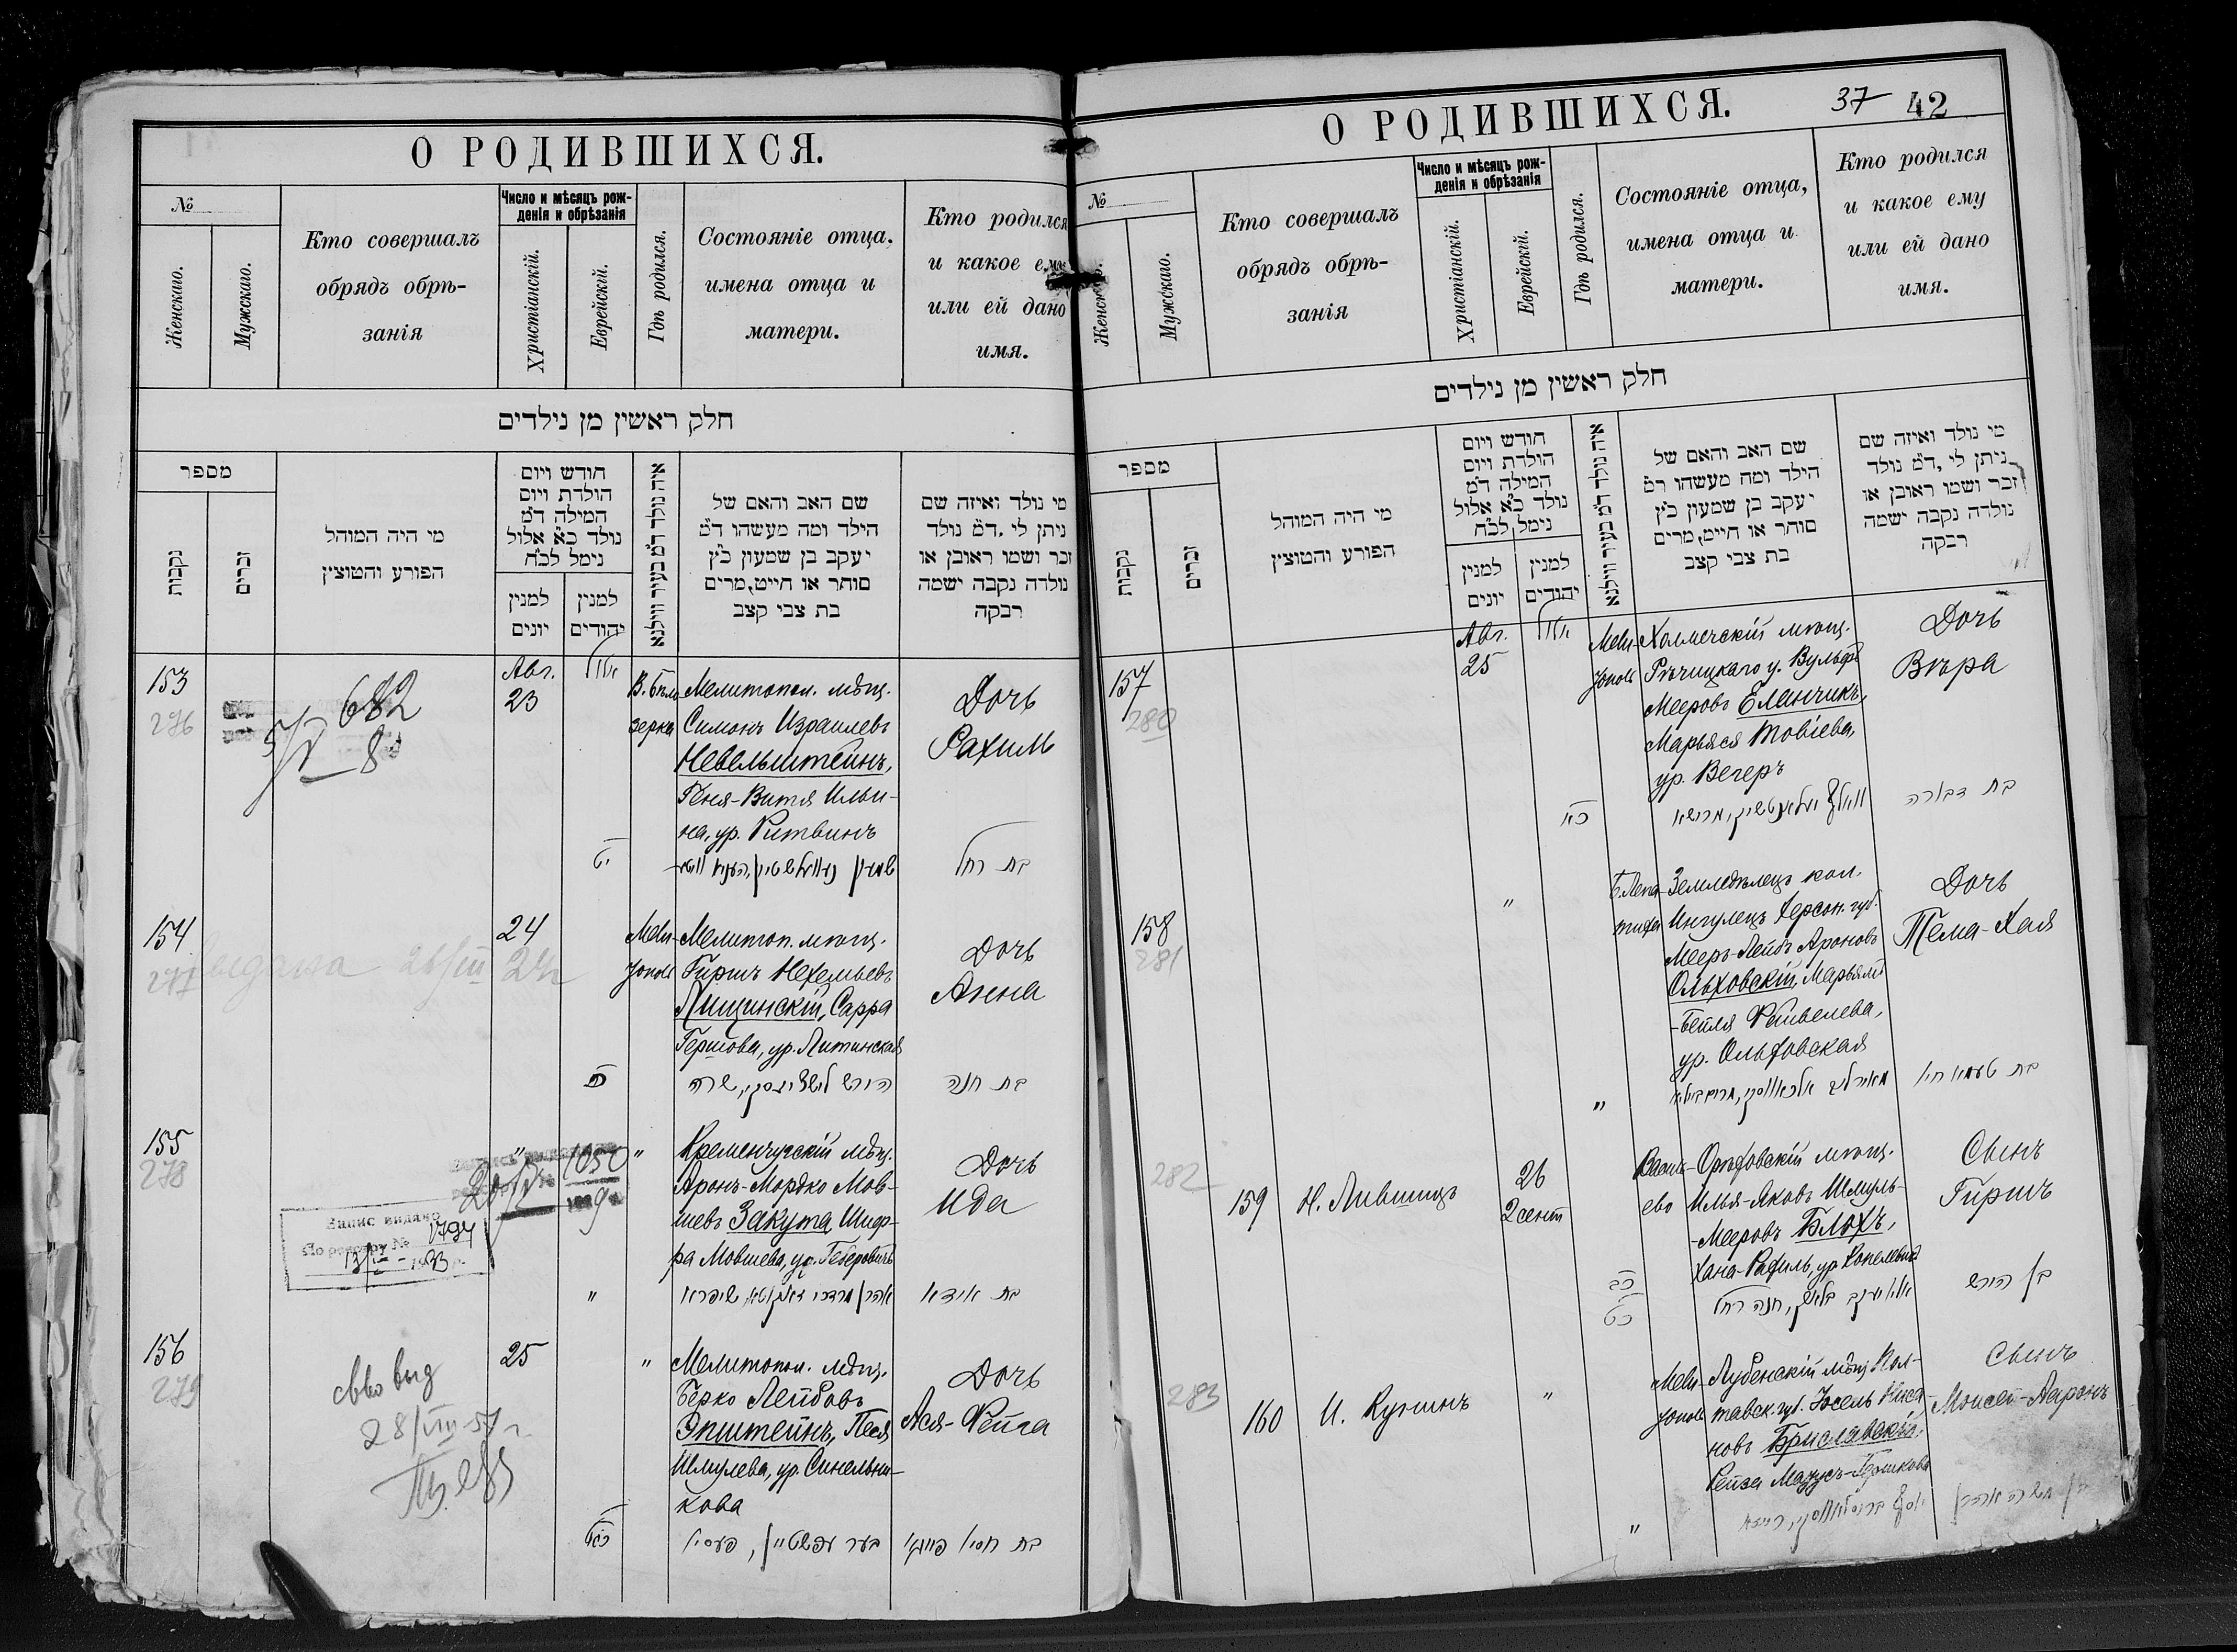 О РОДИВШИХСЯ.
№
Женскаго.
Мужскаго.
Кто совершалъ
обрядъ обрѣ-
занія
Число и мѣсяцъ рож-
денія и обрѣзанія
Христіанскій.
Еврейскій.
Гдѣ родился.
Состояніе отца,
имена отца и
матери.
Кто родился
и какое ему
или ей дано
имя.
חלק ראשין מן נילדים
מספר
נקבות
זכרים
מי היה המוהל
הפורע והטוצץ
חודש ויום
הולדת ויום
המילה ד״מ
נולד כ״א אלול
נימל לכ״ח
למנין
יונים
למנין
יהודים
איה נולד ד״מ בעיר ווילנא
שם האב והאם של
הילד ומה מעשהו ד״מ
יעקב בן שמעון כ״ץ
סוחר או חייט, מרים
בת צבי קצב
מי נולד ואיזה שם
ניתן לי, ד״מ נולד
זכר ושמו ראובן או
נולדה נקבה ישמה
רבקה
153
276
682
8
Авг.
23
אלול
יט
В. Бѣло
зерка
Мелитопол. мѣщ.
Симонъ Израилевъ
Невельштейнъ,
Геня-Витя Ильи-
на, ур. Ритвинъ
Дочь
Рахиль
בת רחל
154
277
24
Мели-
тополь
Мелитоп. мѣщ.
Гиршъ Нехемьевъ
Лищинскій, Сарра
Гершова, ур. Литинская
הירש
שרה
Дочь
Анна
בת חנה
155
278
"
1050
Запис видано
По реєстру № 1794
"
"
Кременчугскій мѣщ.
Аронъ-Мордко Мов-
шевъ Закута, Шиф-
ра Мовшева, ур.
אהרן מרדכי זאקוטא, שיפרא
Дочь
Ида
בת אידא
156
279
св-во выд
28/VIII-57 г.
25
"
Мелитопол. мѣщ.
Берко Лейбовъ
Эпштейнъ, Песя
Шмулева, ур. Синельни-
кова
בער עפשטיין, פעסיא
Дочь
Ася-Фейга
О РОДИВШИХСЯ.
37 42
№
Женскаго.
Мужскаго.
Кто совершалъ
обрядъ обрѣ-
занія
Число и мѣсяцъ рож-
денія и обрѣзанія
Христіанскій.
Еврейскій.
Гдѣ родился.
Состояніе отца,
имена отца и
матери.
Кто родился
и какое ему
или ей дано
имя.
חלק ראשין מן נילדים
מספר
נקבות
זכרים
מי היה המוהל
הפורע והטוצץ
חודש ויום
הולדת ויום
המילה ד״מ
נולד כ״א אלול
נימל לכ״ח
למנין
יונים
למנין
יהודים
איה נולד ד״מ בעיר ווילנא
שם האב והאם של
הילד ומה מעשהו ד״מ
יעקב בן שמעון כ״ץ
סוחר או חייט, מרים
בת צבי קצב
מי נולד ואיזה שם
ניתן לי, ד״מ נולד
זכר ושמו ראובן או
נולדה נקבה ישמה
רבקה
157
280
Авг.
25
אלול
כא
Мели-
тополь
Холмечскій мѣщ.
Рѣчицкаго у. Вульфъ
Мееровъ Еленчикъ,
Марьяся Товіева,
ур. Вегеръ
Дочь
Вѣра
בת דבורה
158
281
"
"
Б. Лепа-
тиха
Земледѣлецъ кол.
Ингулецъ Херсон. губ.
Мееръ-Лейбъ Ароновъ
Ольховскій, Марьямъ
-Бейля Файвелева,
ур. Ольховская
Дочь
Тема-Хая
בת טעמא חיה
282
159
Н. Лившицъ
26
2 сент
כב
כט
Василь-
ево
Орѣховскій мѣщ.
Илья-Яковъ Шмуль-
-Мееровъ Блохъ,
Хана-Рахиль, ур.
אליא יעקב בלאך, חנה רחל
Сынъ
Гиршъ
בן הירש
283
160
И. Кугинъ
"
"
Мели-
тополь
Лубенскій мѣщ. Пол-
тавск. губ. Іосель
новъ Бриславскій,
Рейза
Сынъ
Моисей-Ааронъ
בן משה אהרן